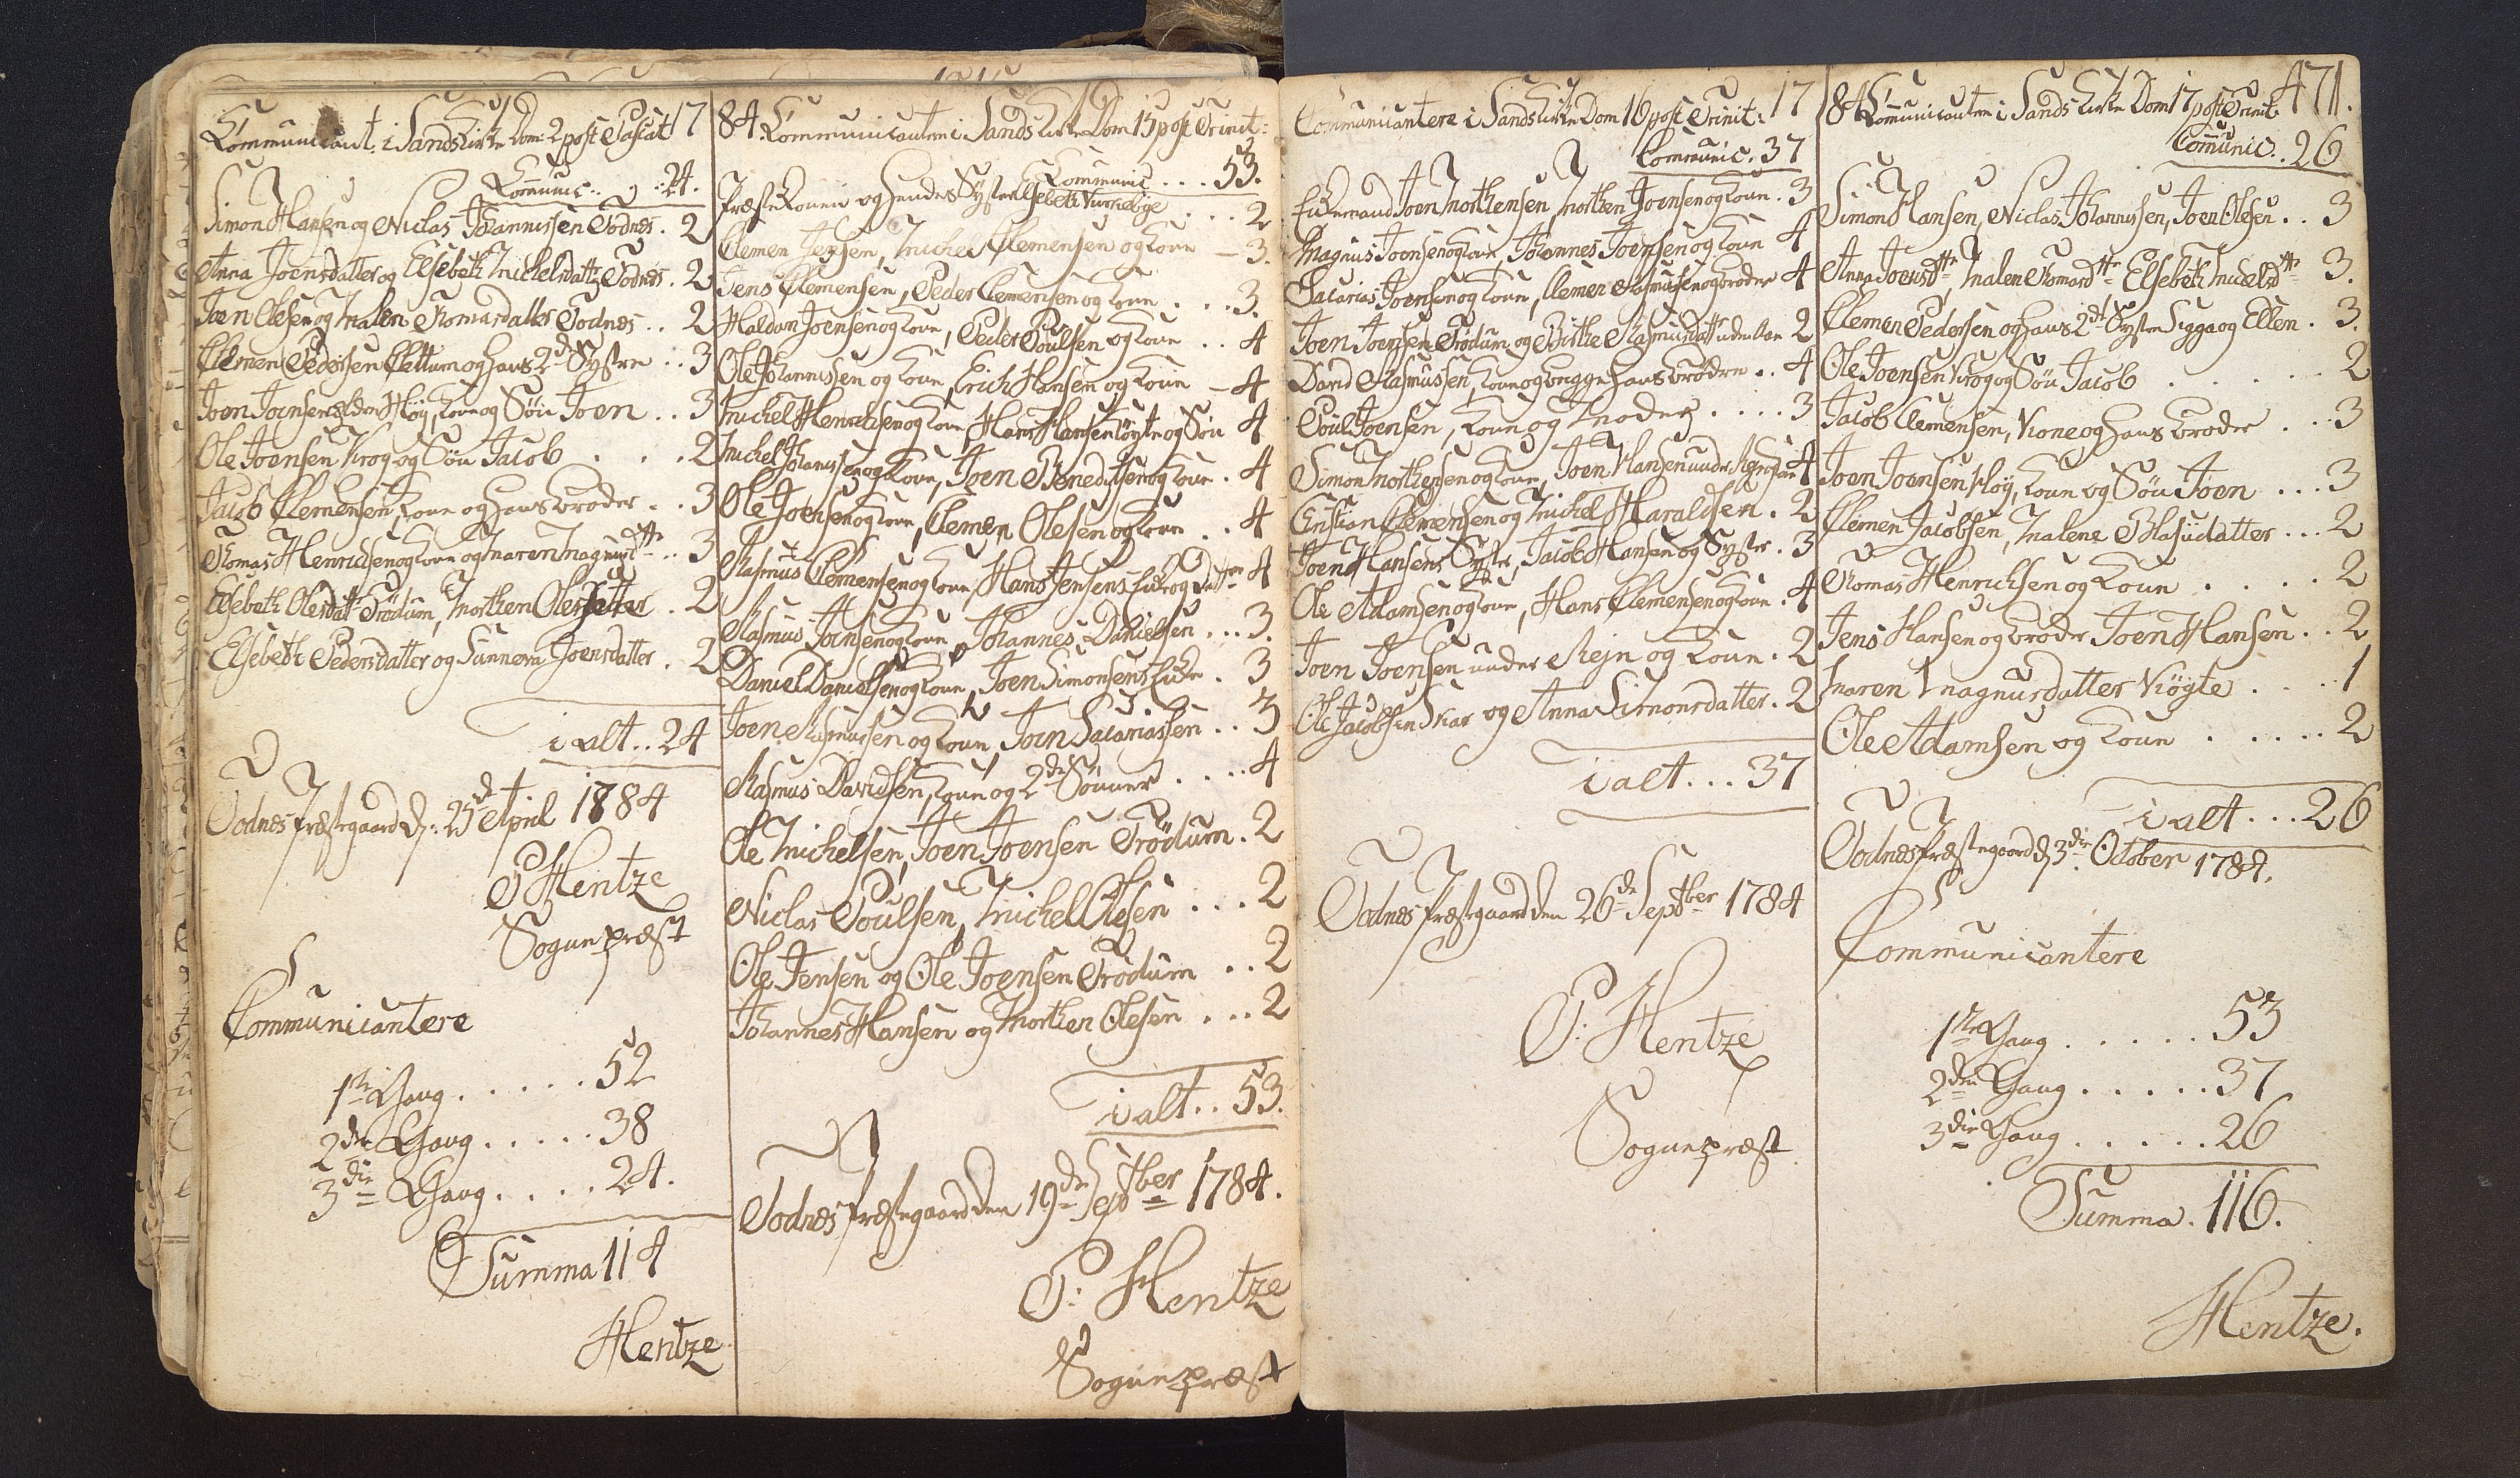 Communicant: i Sands Kirke Dom: 2 post Pascat 17
Communic: . 24.
Simon Hansen og Niclas Johannissen Todnes . 2
Anna Joensdatter og Elsebeth Michelsdattr Todnes . 2
Joen Olesen og Malen Thomasdatter Todnes .. 2
Clemen Pedersen Clettum og hans 2de Systre .. 3
Joen Joensen ælder Höÿ, Kone og Sön Joen .. 3
Ole Joensen Krog og Sön Jacob . . . 2
Jacob Clemensen, Kone og hans Broder . . 3
Thomas Henrichsen og Kone og Maren Magnusdttr .. 3
Elsebeth Olesdatt Trödum, Morthen Oles Datter . 2
Elsebeth Pedersdatter og Sunneva Joensdatter . 2
i alt .. 24
Todnes Præstegaard d: 25de April 1784
P Hentze
Sognepræst
Communicantere
1ste Gang . . . . . 52
2den Gang . . . . . 38
3die Gang . . . . 24.
Summa 114
Hentze
84. Communicanten i Sands Kirke Dom 15 post Trinit:
Communic ... 53.
Præste Konen og hendes Syster Elsebeth ... 2
Clemen Jensen, Michel Clemensen og Kone — 3.
Jens Clemensen, Peder Clemensen og Kone . . . 3.
Haldan Joensen og Kone, Peder Poulsen og Kone . . 4
Ole Johannissen og Kone, Erich Hansen og Kone — 4
Michel Henrichsen og Kone, Hans Hansen og Sön 4
Michel Johannissen og Kone, Joen Benedictsen og Kone . 4
Ole Joensen og Kone, Clemen Olesen og Kone . . 4
Rasmus Clemensen og Kone, Hans Jensens Enke og Datter 4
Rasmus Joensen og Kone, Johannes Danielsen ... 3.
Daniel Danielsen og Kone, Joen Simonsens Enke . 3
Joen Rasmussen og Kone, Joen Sacariassen .. 3
Rasmus Davidsen, Kone og 2de Sönner . . . . 4
Ole Michelsen, Joen Joensen Trödum . 2
Niclas Poulsen, Michel Olesen ... 2
Ole Jensen og Ole Joensen Trödum .. 2
Johannes Hansen og Morthen Olesen ... 2
i alt .. 53.
Todnes Præstegaard den 19de Septber 1784.
P: Hentze
Sognepræst
Communicantere i Sands Kirke Dom 16 post Trinit: 17
Communic. 37
Enkemand Joen Morthensen, Morthen Joensen og Kone . 3
Magnus Joensen og Kone, Johannes Joensen og Kone 4
Sacarias Joensen og Kone, Clemen Rasmussen og Broder 4
Joen Joensen Trödum og Birthe Rasmusdattr uden Aae 2
David Rasmussen, Kone og begge hans Brödre .. 4
Poul Joensen, Kone og Moder . . . . 3
Simon Morthensen og Kone, Joen Hansen under Rejn og Kone 4
Christian Clemensen og Michel Haraldsen . 2
Joen Hansens Syster, Jacob Hansen og Syster . 3
Ole Adamsen og Kone, Hans Clemensen og Kone . 4
Joen Joensen under Rejn og Kone . 2
Ole Jacobsen Skar og Anna Simonsdatter . 2
i alt ... 37
Todnes Præstegaard den 26de Septber 1784
P: Hentze
Sognepræst
84 Communicanten i Sands Kirke Dom 17 post Trinit: 471.
Communic . . 26
Simon Hansen, Niclas Johannissen, Joen Olesen .. 3
Anna Joensdttr, Malen Thomasdttr Elsebeth Michelsdttr 3.
Clemen Pedersen og hans 2de Systre Sigga og Ellen . 3.
Ole Joensen Krog og Sön Jacob . . . . . . 2
Jacob Clemensen, Kone og hans Broder . . . 3
Joen Joensen Höÿ, Kone og Sön Joen ... 3
Clemen Jacobsen, Malene Blasiidatter ... 2
Thomas Henrichsen og Kone . . . . 2
Jens Hansen og Broder Joen Hansen . . 2
Maren Magnusdatter Kiögte . . . . 1
Ole Adamsen og Kone . . . . . 2
i alt ... 26
Todnes Præstegaard d 3die October 1784.
Communicantere
1ste Gang . . . . . 53
2den Gang . . . . . 37
3die Gang . . . . . 26
Summa. 116.
Hentze.